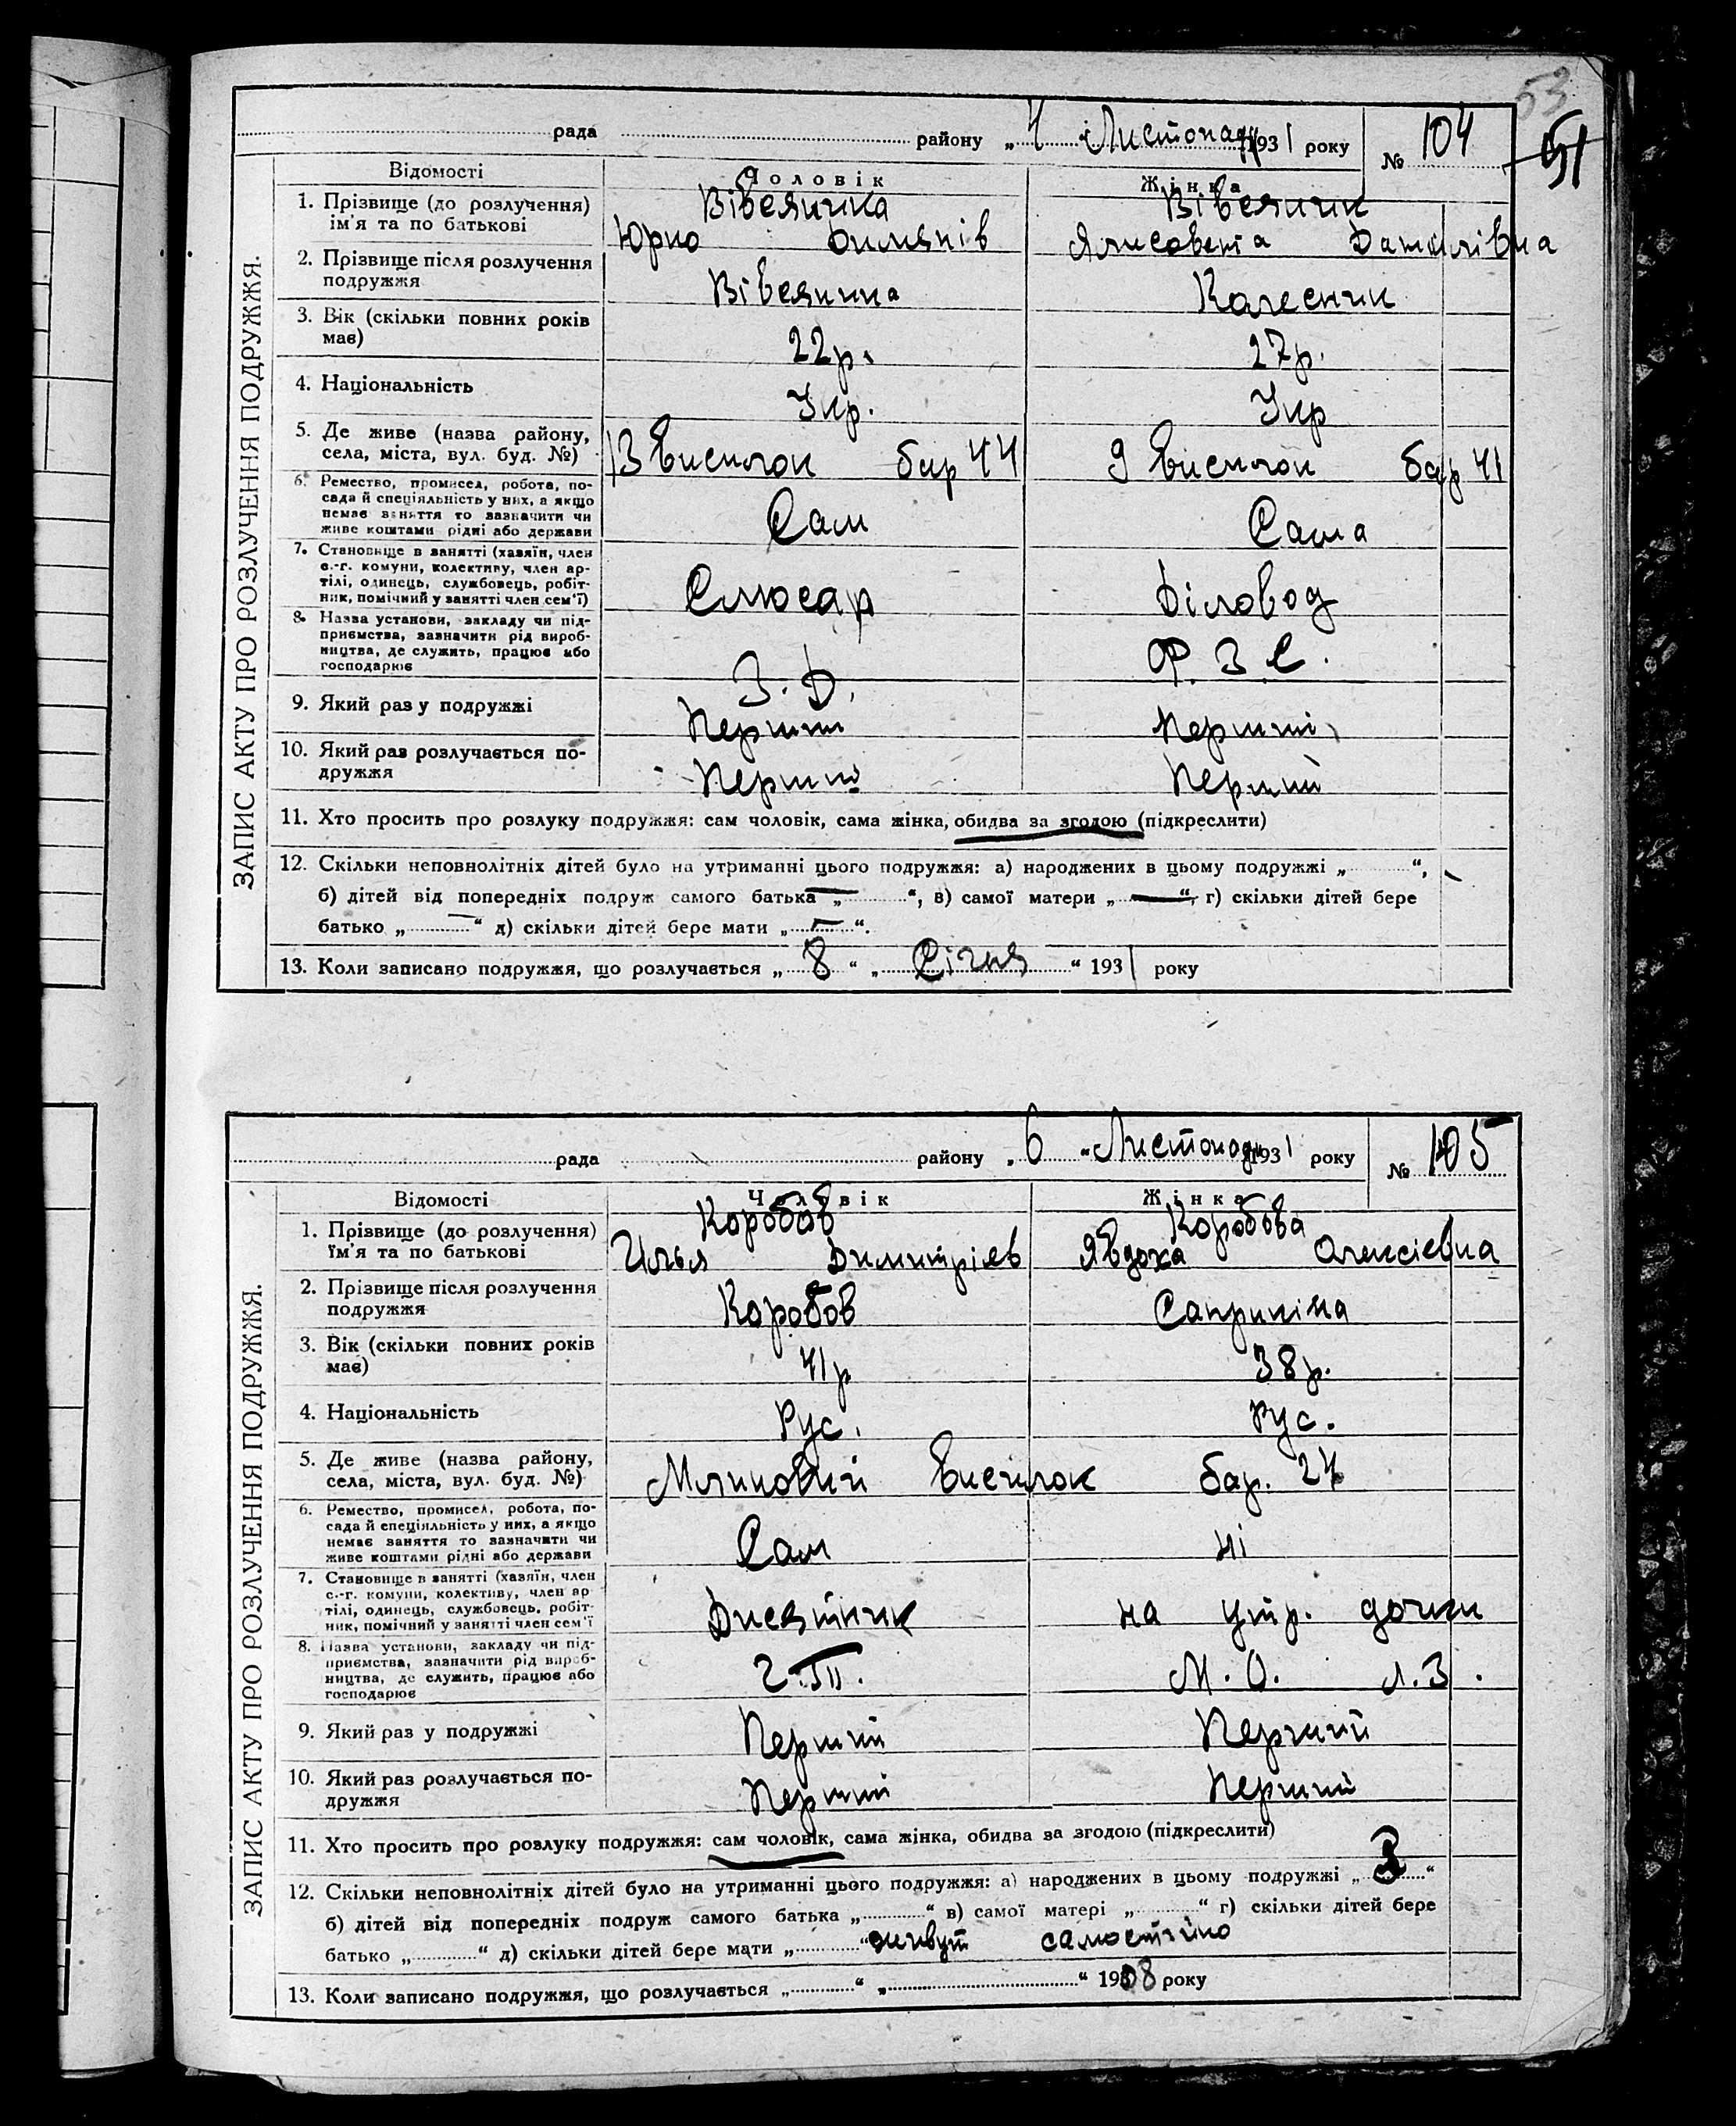 53
51
рада району „4 „Листопаду 1931 року № 104
ЗАПИС АКТУ ПРО РОЗЛУЧЕННЯ ПОДРУЖЖЯ.
Відомості Чоловік Жінка
1. Прізвище (до розлучення)
ім'я та по батькові
Юрко
2. Прізвище після розлучення
подружжя
Калесник
3. Вік (скільки повних років
має)
22р. 27р.
4. Національність
Укр. Укр
5. Де живе (назва району,
села, міста, вул. буд. №)
Висилок бар 44 9 Висилок бар 41
6. Ремество, промисел, робота, по-
сада й спеціяльність у них, а якщо
немає заняття то зазначити чи
живе коштами рідні або держави
Сам Сама
7. Становище в занятті (хазяїн, член
с.-г. комуни, колективу, член ар-
тілі, одинець, службовець, робіт-
ник, помічний у занятті член сем'ї)
Слюсар Діловод
8. Назва установи, закладу чи під-
приємства, зазначити рід вироб-
ництва, де служить, працює або
господарює
З. Д. Ф. З. С.
9. Який раз у подружжі
Перший Перший
10. Який раз розлучається по-
дружжя
Перший Перший
11. Хто просить про розлуку подружжя: сам чоловік, сама жінка, обидва за згодою (підкреслити)
12. Скільки неповнолітніх дітей було на утриманні цього подружжя: а) народжених в цьому подружжі „ “,
б) дітей від попередніх подруж самого батька „— “, в) самої матери „—“, г) скільки дітей бере
батько „— “ д) скільки дітей бере мати „—“.
13. Коли записано подружжя, що розлучається „8“ „Січня“ 1931 року
рада району „6 „Листопаду 1931 року № 105
ЗАПИС АКТУ ПРО РОЗЛУЧЕННЯ ПОДРУЖЖЯ.
Відомості Чоловік Жінка
1. Прізвище (до розлучення)
ім'я та по батькові
Коробов Коробова
Илья Димитріев Явдоха Олексієвна
2. Прізвище після розлучення
подружжя
Коробов Саприкіна
3. Вік (скільки повних років
має)
41р 38р.
4. Національність
Рус. Рус.
5. Де живе (назва району,
села, міста, вул. буд. №)
Висилок бар. 24
6. Ремество, промисел, робота, по-
сада й спеціяльність у них, а якщо
немає заняття то зазначити чи
живе коштами рідні або держави
Сам ні
7. Становище в занятті (хазяїн, член
с.-г. комуни, колективу, член ар-
тілі, одинець, службовець, робіт-
ник, помічний у занятті член сем'ї
Десятник на утр. дочки
8. Назва установи, закладу чи під-
приємства, зазначити рід вироб-
ництва, де служить, працює або
господарює
М. О. Л. З.
9. Який раз у подружжі
Перший Перший
10. Який раз розлучається по-
дружжя
Перший Перший
11. Хто просить про розлуку подружжя: сам чоловік, сама жінка, обидва за згодою (підкреслити)
12. Скільки неповнолітніх дітей було на утриманні цього подружжя: а) народжених в цьому подружжі „3“
б) дітей від попередніх подруж самого батька „ “ в) самої матері „ “ г) скільки дітей бере
батько „ “ д) скільки дітей бере мати „ “ живут самостійно
13. Коли записано подружжя, що розлучається „ “ „ “ 1908 року